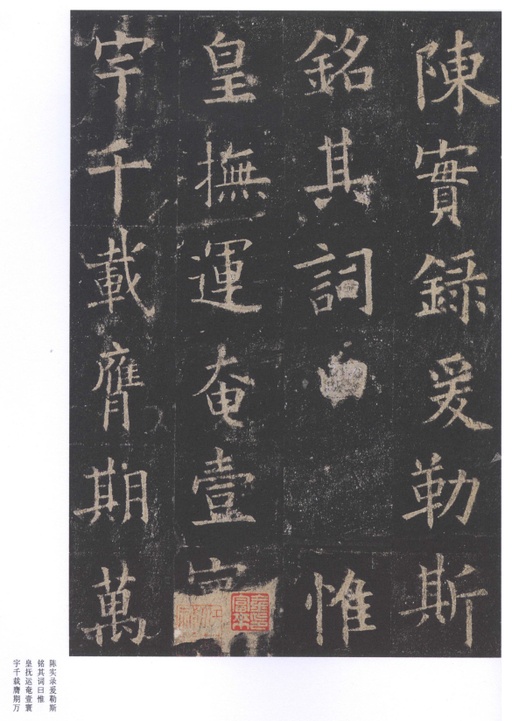 陳實録爰勒斯
銘其詞曰惟
皇撫運奄壹寰
宇千載膺期萬
陈实录爰勒斯
铭其词曰惟
皇抚运奄壹寰
宇千载膺期万